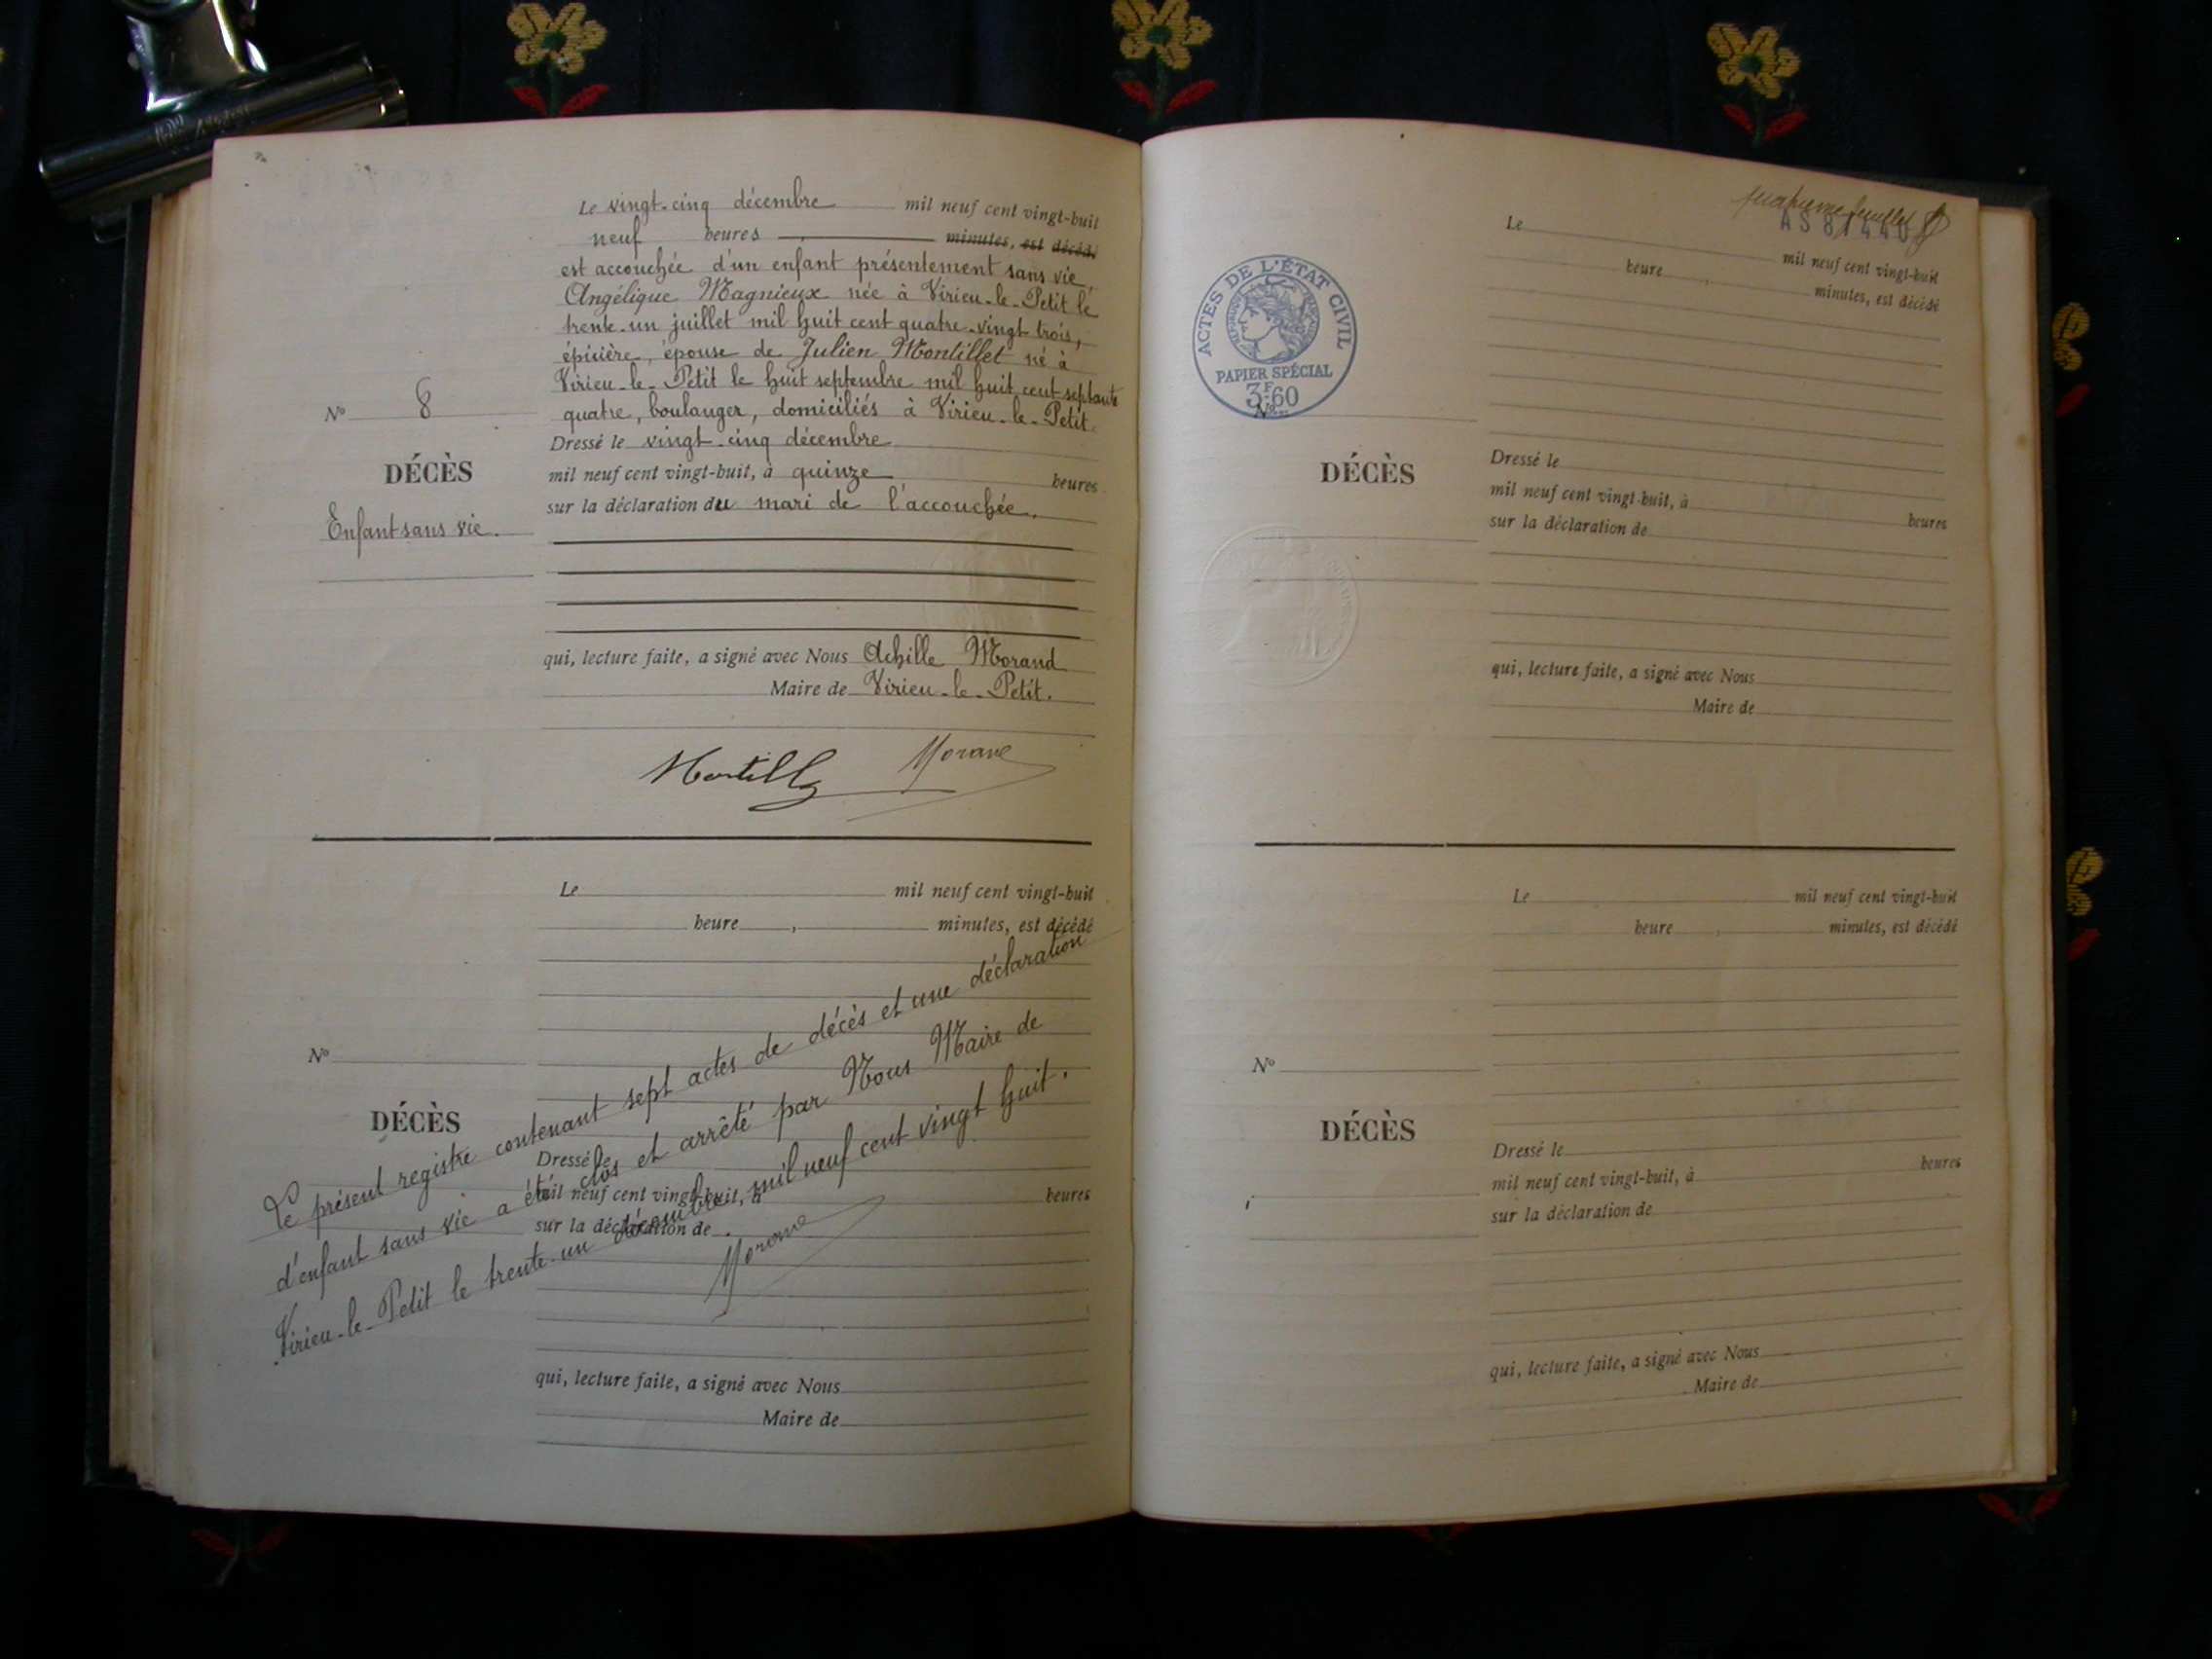 Le vingt-cinq décembre mil neuf cent vingt-huit
neuf heures , minutes, est décédé
est accouchée d'un enfant présentement sans vie,
Angélique Magnieux née à Virieu-le-Petit le
trente-un juillet mil huit cent quatre-vingt trois,
épicière, épouse de Julien Montillet né à
Virieu-le-Petit le huit septembre mil huit cent septante
quatre, boulanger, domiciliés à Virieu-le-Petit.
Dressé le vingt-cinq décembre
mil neuf cent vingt-huit, à quinze heures
sur la déclaration du mari de l'accouchée.
qui, lecture faite, a signé avec Nous Achille Morand
Maire de Virieu-le-Petit.
No 8
DÉCÈS
Enfant sans vie.
Morand
Le mil neuf cent vingt-huit
heure , minutes, est décédé
No
DÉCÈS
Dressé le
mil neuf cent vingt-huit, à heures
sur la déclaration de
qui, lecture faite, a signé avec Nous
Maire de
Le présent registre contenant sept actes de décès et une déclaration
d'enfant sans vie a été clos et arrêté par Nous Maire de
Virieu-le-Petit le trente-un décembre mil neuf cent vingt huit.
Morand
feuillet
ACTES DE L'ÉTAT CIVIL
PAPIER SPÉCIAL
3F60
No
DÉCÈS
Le mil neuf cent vingt-huit
heure , minutes, est décédé
Dressé le
mil neuf cent vingt-huit, à heures
sur la déclaration de
qui, lecture faite, a signé avec Nous
Maire de
No
DÉCÈS
Le mil neuf cent vingt-huit
heure , minutes, est décédé
Dressé le
mil neuf cent vingt-huit, à heures
sur la déclaration de
qui, lecture faite, a signé avec Nous
Maire de